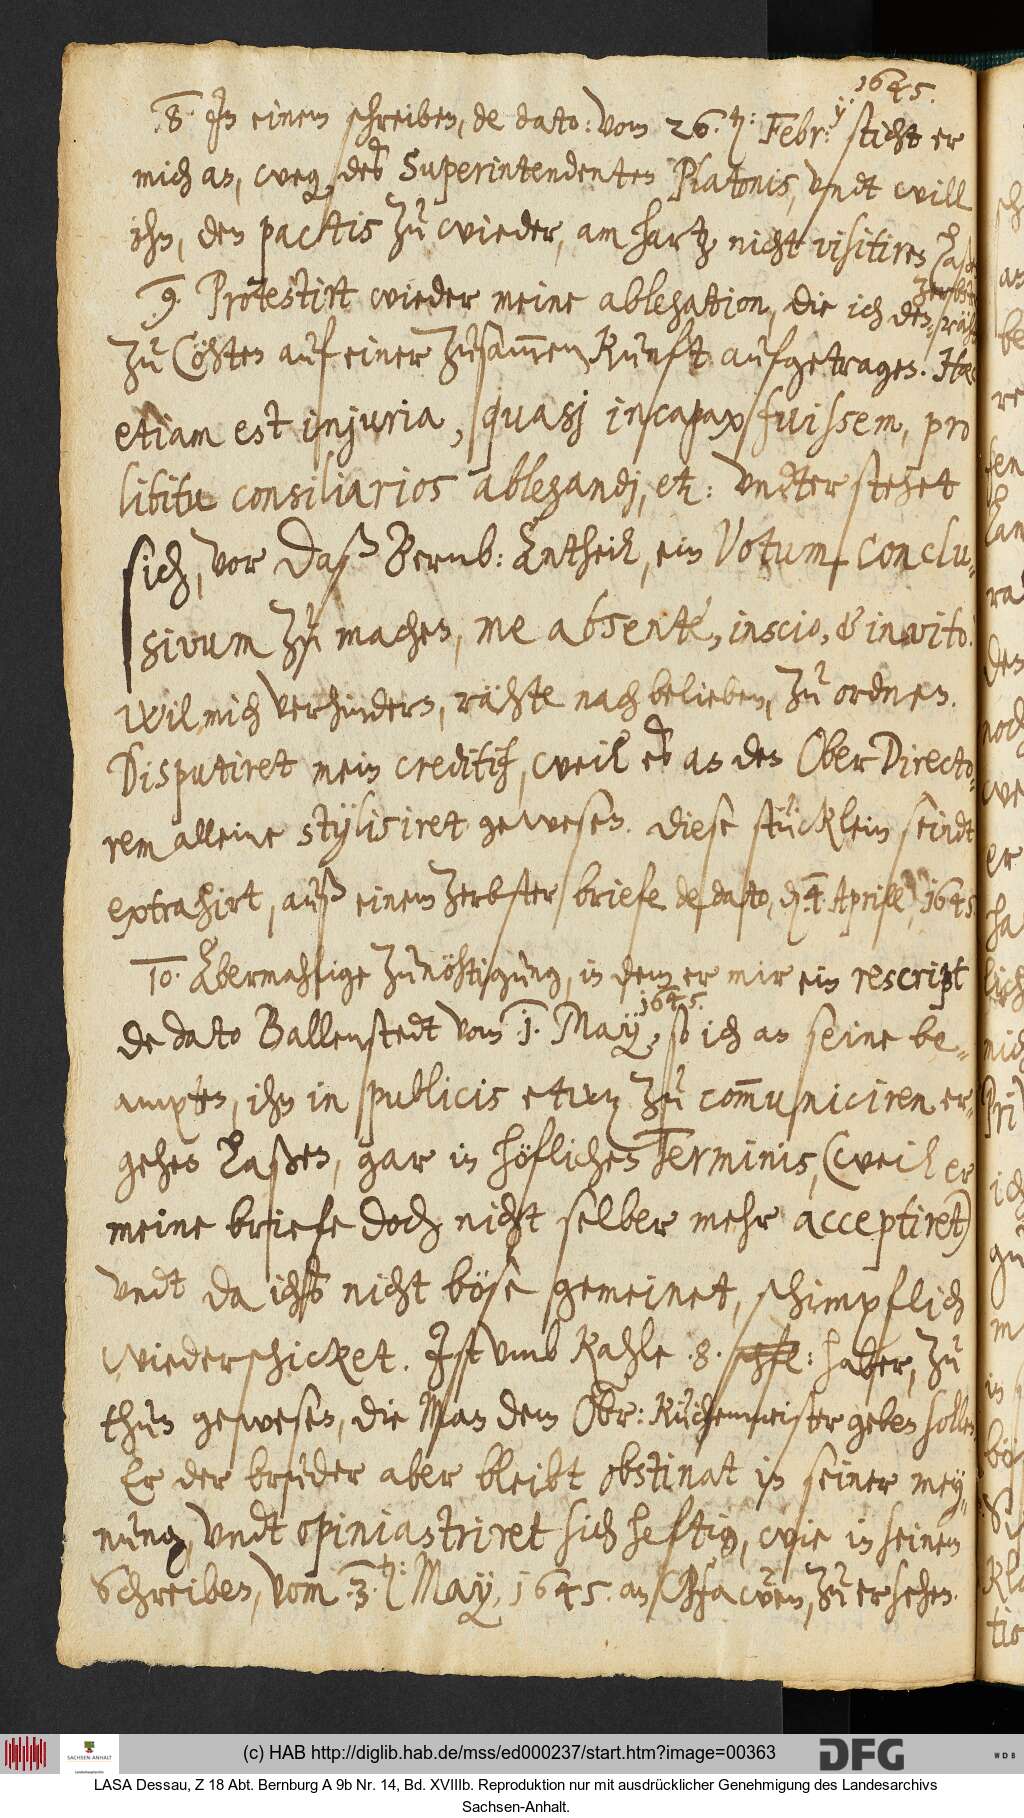 1645.
8. In einem schreiben, de dato: vom 26.ten: Febr:y: sticht er
mich an, weg. des Superintendenten Platonis, undt will
ihn, den pactis zu wieder, am hartz nicht visitiren laßen
9. Protestirt wieder meine ablegation, die ich den Zerbster rähten
zu Cöhten auf einer zusammen Kunft aufgetragen. Haec
etiam est injuria, quasj incapax fuissem, pro
libitu consiliarios ablegandj, etc: undter stehet
sich, vor daß Bernb: Antheil, ein Votum conclu-
sivum zu machen, me absente, inscio, & invito.
Wil mich verhindern, rähte nach belieben, zu ordnen.
Disputiret mein creditif, weil es an den Ober Directo-
rem alleine stylisiret gewesen. diese stücklein seindt
extrahirt, auß einem Zerbster briefe de dato, den 4. Aprill, 1645
10. Abermahlige zunöhtigung, in dem er mir ein rescript
de dato Ballenstedt vom 1. May, 1645. so ich an seine be-
ampten, ihn in publicis etwas zu communiciren er-
gehen laßen, gar in höflichen Terminis, (weil er
meine briefe doch nicht selber mehr acceptiret)
undt da ichs nicht böse gemeinet, schimpflich
wiederschicket. Ist umb Kahle 8. schfl: haber, zu
thun gewesen, die Man dem Obr: Küchenmeister geben sollen
Er der bruder aber bleibt obstinat in seiner mey-
nung, undt opiniastriret sich heftig, wie in seinem
Schreiben, vom 3.ten: May, 1645. an Pfawen, zu ersehen.
(c) HAB http://diglib.hab.de/mss/ed000237/start.htm?image=00363
LASA Dessau, Z 18 Abt. Bernburg A 9b Nr. 14, Bd. XVIIIb. Reproduktion nur mit ausdrücklicher Genehmigung des Landesarchivs
Sachsen-Anhalt.
SACHSEN-ANHALT
DFG
WDB